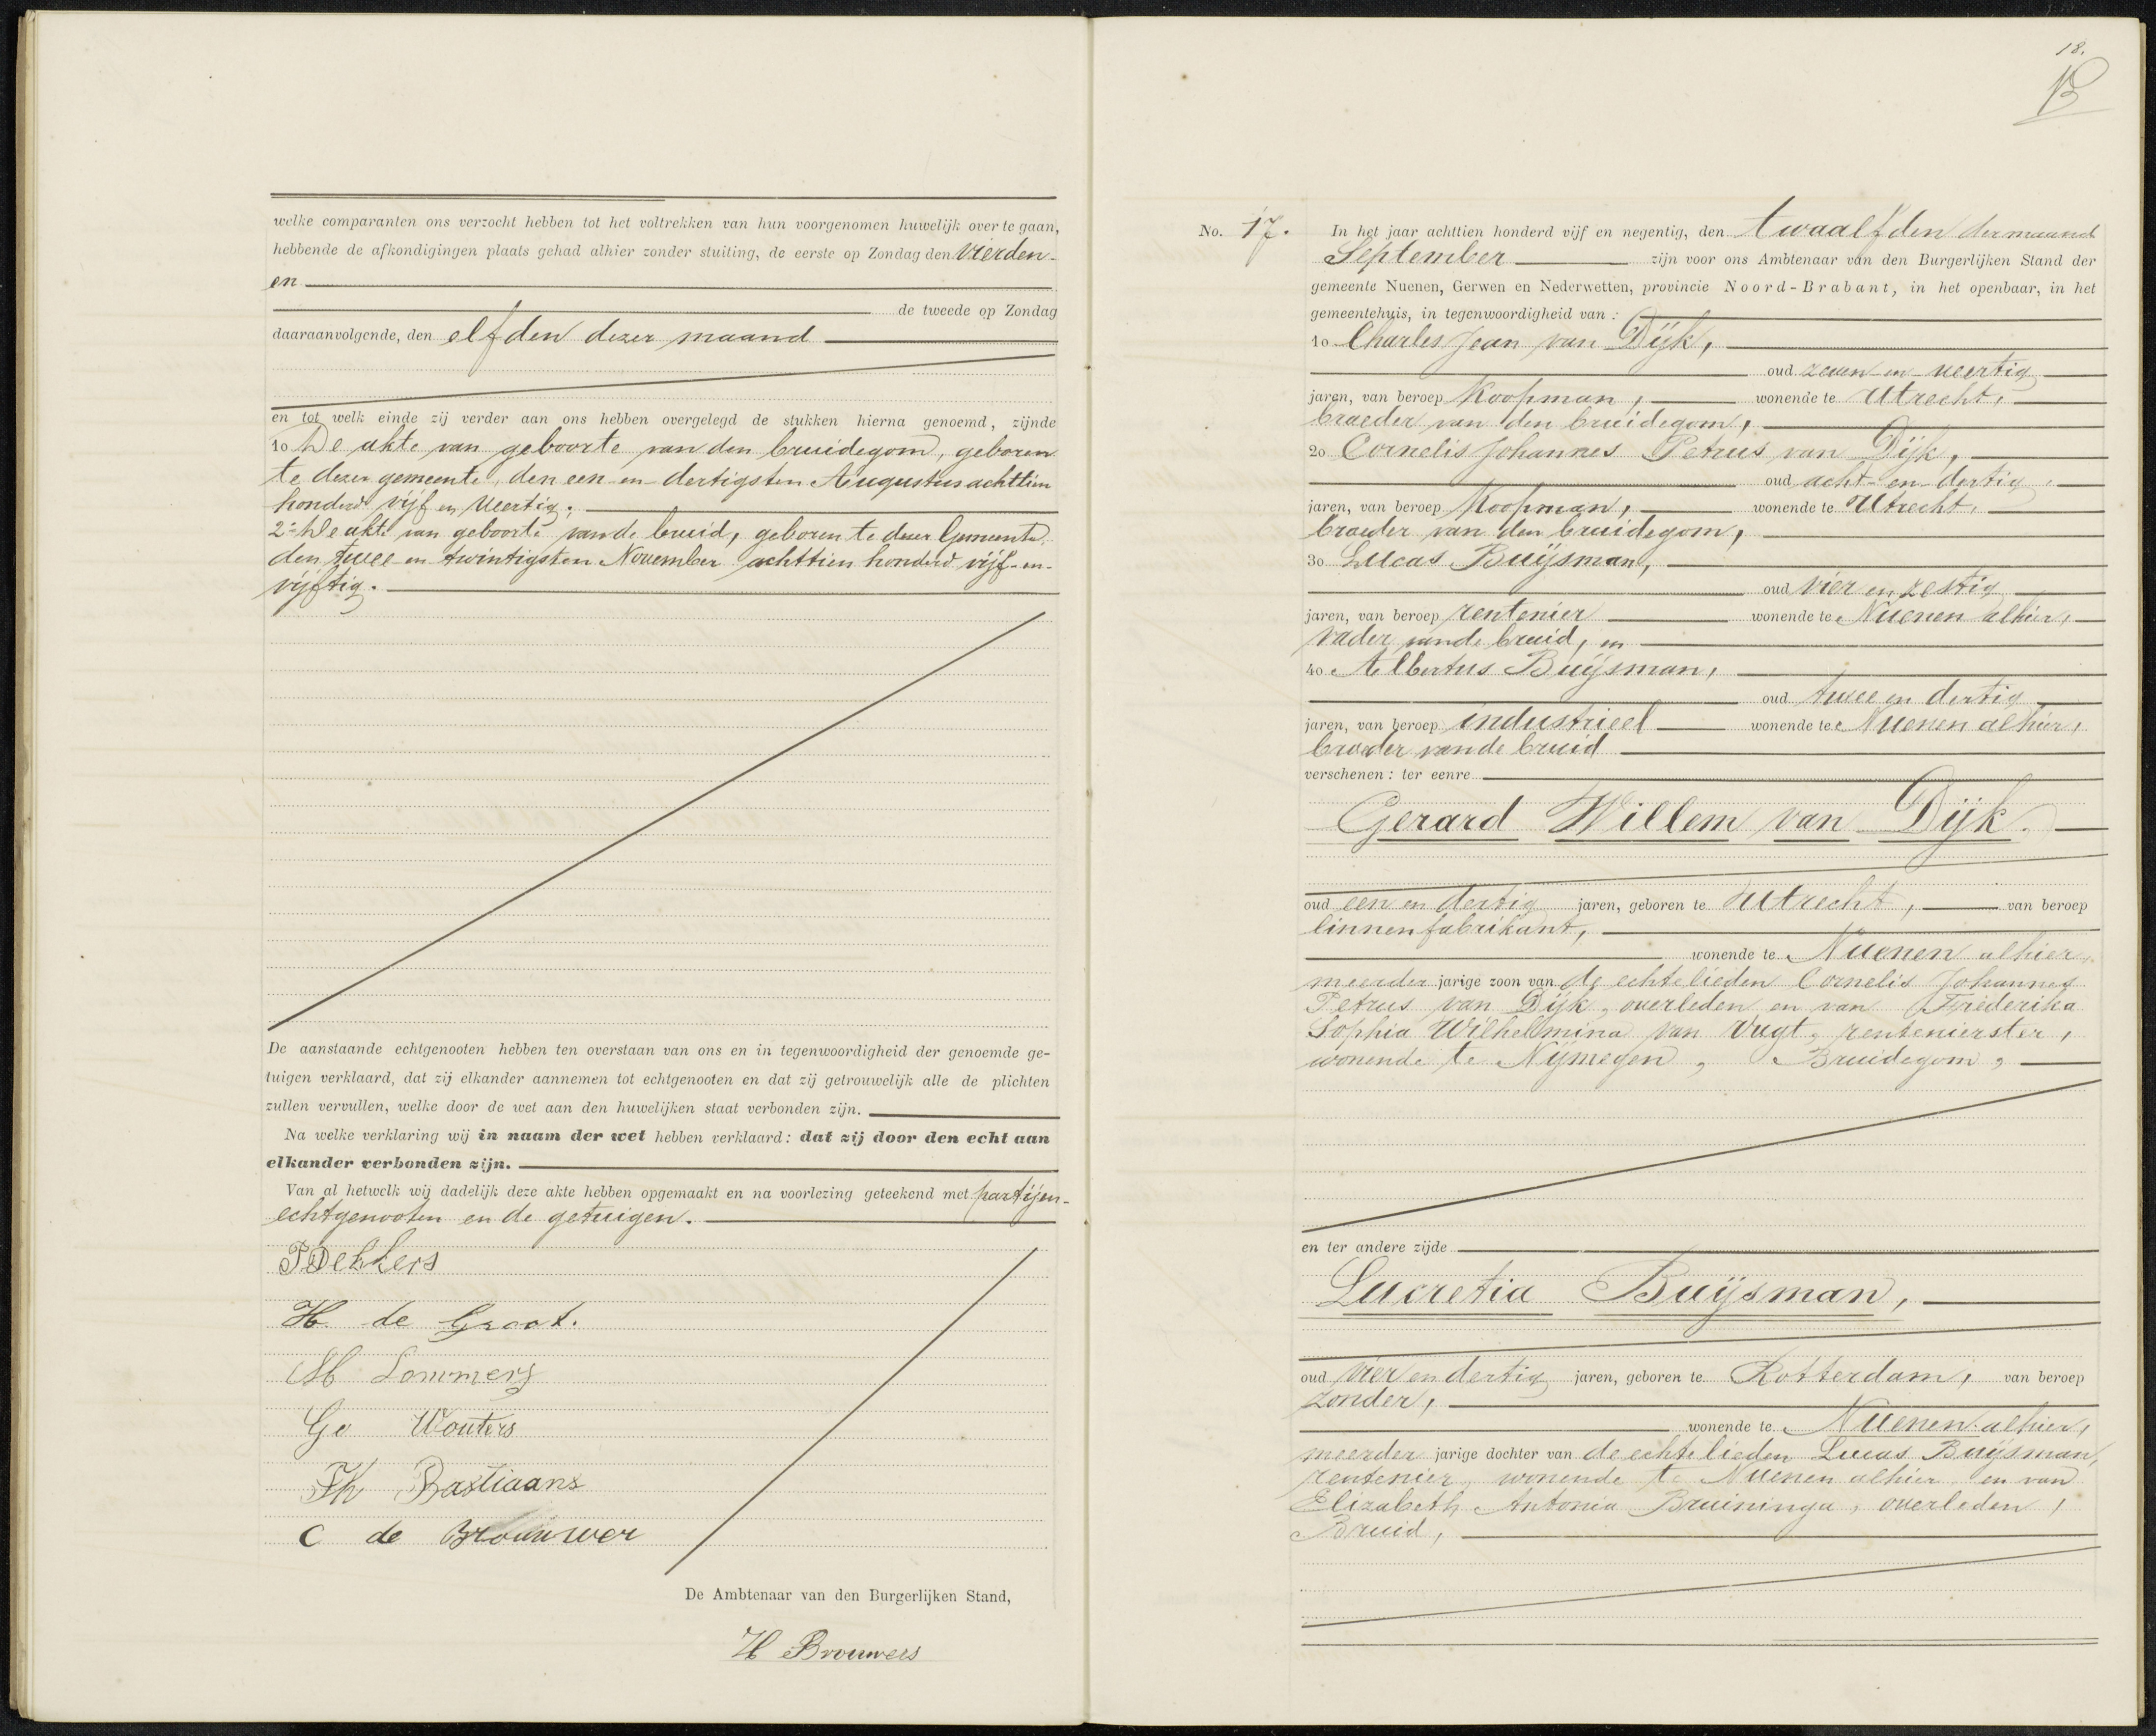 welke comparanten ons verzocht hebben tot het voltrekken van hun voorgenomen huwelijk over te gaan,
hebbende de afkondigingen plaats gehad alhier zonder stuiting, de eerste op Zondag den vierden
en
de tweede op Zondag
daaraanvolgende, den elfden dezer maand
en tot welk einde zij verder aan ons hebben overgelegd de stukken hierna genoemd, zijnde
1o De akte van geboorte van den bruidegom, geboren
te dezer gemeente, den een-en-dertigsten Augustus achttien
honderd vijf en veertig;
2e De akte van geboorte van de bruid, geboren te dezer Gemeente,
den twee-en-twintigsten November achttien honderd vijf-en-
vijftig.
De aanstaande echtgenooten hebben ten overstaan van ons en in tegenwoordigheid der genoemde ge-
tuigen verklaard, dat zij elkander aannemen tot echtgenooten en dat zij getrouwelijk alle de plichten
zullen vervullen, welke door de wet aan den huwelijken staat verbonden zijn.
Na welke verklaring wij in naam der wet hebben verklaard: dat zij door den echt aan
elkander verbonden zijn.
Van al hetwelk wij dadelijk deze akte hebben opgemaakt en na voorlezing geteekend met partijen-
echtgenooten en de getuigen.
P Dekkers
H de Groot.
M Sommers
Ge Wouters
Th Bastiaans
C de Brouwer
De Ambtenaar van den Burgerlijken Stand,
H Brouwers
18.
No. 17. In het jaar achttien honderd vijf en negentig, den twaalfden der maand
September zijn voor ons Ambtenaar van den Burgerlijken Stand der
gemeente Nuenen, Gerwen en Nederwetten, provincie Noord-Brabant, in het openbaar, in het
gemeentehuis, in tegenwoordigheid van:
1o Charles Jean van Dijk,
oud zeven-en-veertig
jaren, van beroep Koopman, wonende te Utrecht,
broeder van den bruidegom,
2o Cornelis Johannes Petrus van Dijk,
oud acht-en-dertig
jaren, van beroep Koopman, wonende te Utrecht,
broeder van den bruidegom,
3o Lucas Buijsman,
oud vier en zestig
jaren, van beroep rentenier wonende te Nuenen alhier,
vader van de bruid, en
4o Albertus Buijsman,
oud twee en dertig
jaren, van beroep industrieel wonende te Nuenen alhier,
broeder van de bruid
verschenen: ter eenre
Gerard Willem van Dijk.
oud een en dertig jaren, geboren te Utrecht, van beroep
linnenfabrikant,
wonende te Nuenen alhier,
meerder jarige zoon van de echtelieden Cornelis Johannes
Petrus van Dijk, overleden en van Frederika
Sophia Wilhelmina van Vugt, rentenierster,
wonende te Nijmegen, Bruidegom,
en ter andere zijde
Lucretia Buijsman,
oud vier en dertig jaren, geboren te Rotterdam, van beroep
zonder,
wonende te Nuenen alhier,
meerder jarige dochter van de echtelieden Lucas Buijsman,
rentenier, wonende te Nuenen alhier, en van
Elizabeth Antonia Bruininga, overleden,
Bruid,